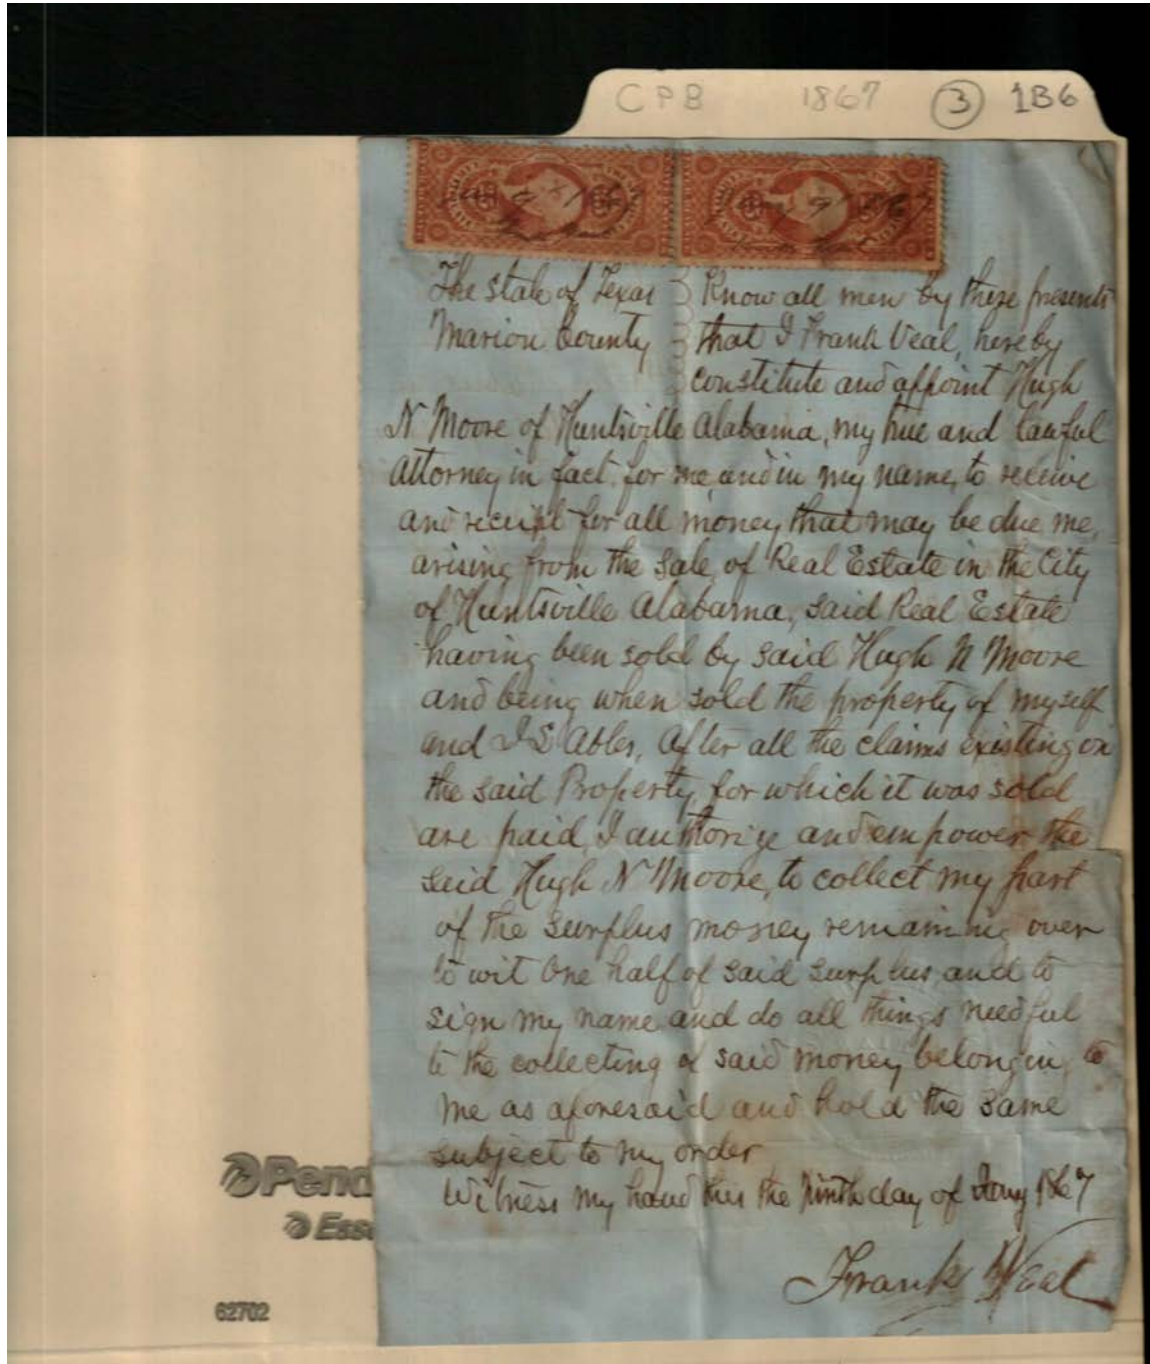 CPB 1867 3 1B6
The state of Texas } Know all men by these presents
Marion County } that I Frank Veal, hereby
} constitute and appoint Hugh
N Moore of Huntsville Alabama, my true and lawful
attorney in fact, for me, and in my name, to receive
and receipt for all money that may be due me,
arising from the sale, of Real Estate in the City
of Huntsville Alabama, said Real Estate
having been sold by said Hugh N Moore
and being when sold the property of myself
and after all the claims existing on
the said Property, for which it was sold
are paid, I authorize and empower the
said Hugh N Moore, to collect my part
of the surplus money remaining over
to wit one half of said surplus, and to
sign my name and do all things needful
to the collecting of said money belonging to
me as aforesaid and hold the same
subject to my order
Witness my hand this the ninth day of Jany 1867
Frank Veal
Pend
Esse
62702